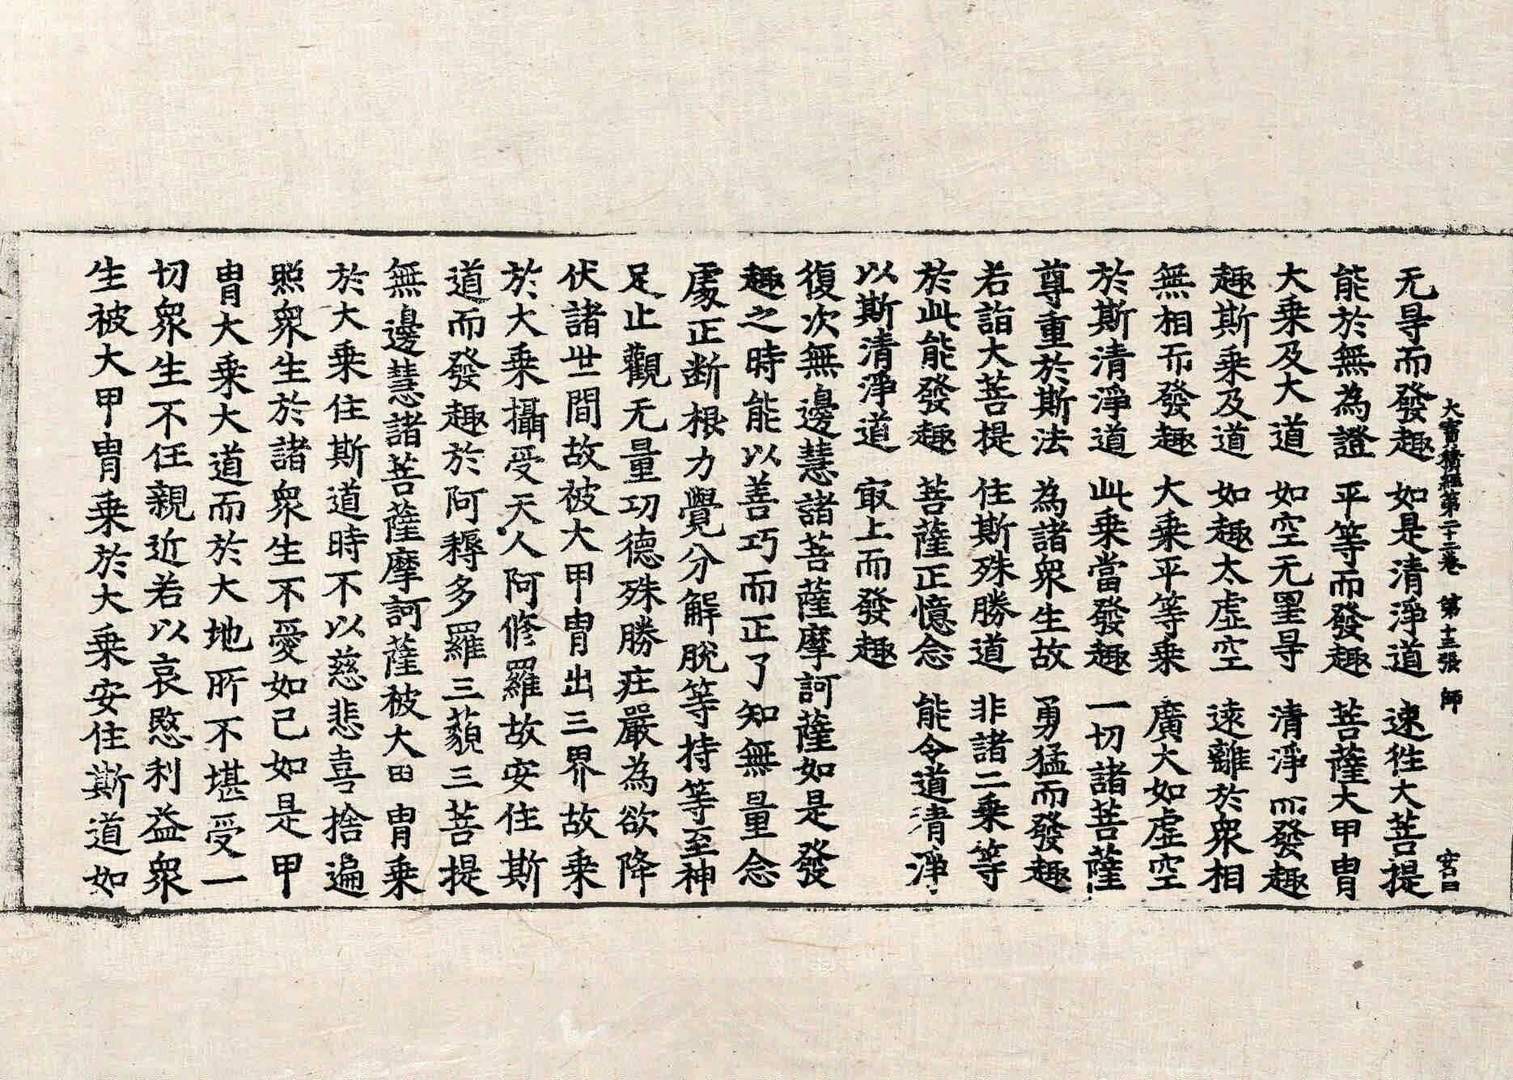 大寳積經第二十三卷　第十三張　師
无㝵而發趣　如是清淨道　速徃大菩提
能於無為證　平等而發趣　菩薩大甲冑
大乘及大道　如空无罣㝵　清淨而發趣
趣斯乘及道　如趣太虛空　遠離於衆相
無相而發趣　大乘平等乘　廣大如虛空
於斯清淨道　此乘當發趣　一切諸菩薩
尊重於斯法　為諸衆生故　勇猛而發趣
若詣大菩提　住斯殊勝道　非諸二乘等
於此能發趣　菩薩正憶念　能令道清淨
以斯清淨道　㝡上而發趣
復次無邊慧諸菩薩摩訶薩如是發
趣之時能以善巧而正了知無量念
處正断根力覺分解脫等持等至神
足止觀无量功德殊勝庄嚴為欲降
伏諸世間故被大甲冑出三界故乘
於大乘攝受天人阿修羅故安住斯
道而發趣於阿耨多羅三藐三菩提
無邊慧諸菩薩摩訶薩被大甲冑乘
於大乘住斯道時不以慈悲喜捨遍
照衆生於諸衆生不愛如己如是甲
冑大乘大道而於大地所不堪受一
切衆生不任親近若以哀愍利益衆
生被大甲冑乘於大乘安住斯道如